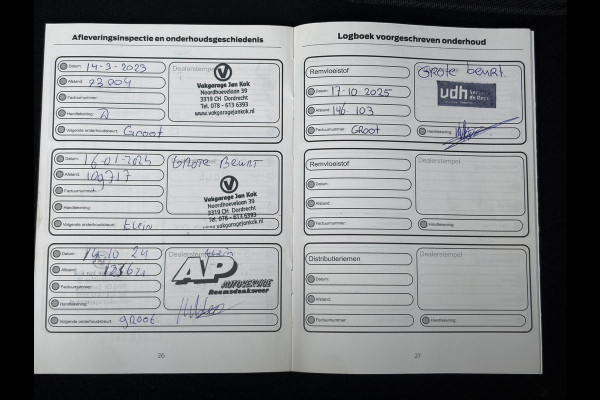 Afleveringsinspectie en onderhoudsgeschiedenis
Datum: 14-3-2023
Afstand: 93004
Factuurnummer:
Handtekening:
Volgende onderhoudsbeurt: Groot
Dealerstempel
Vakgarage Jan Kok
Noordhoevelaan 39
3319 CH Dordrecht
Tel. 078 - 613 6393
www.vakgaragejankok.nl
Datum: 16-01-2024
Afstand: 109717
Factuurnummer:
Handtekening:
Volgende onderhoudsbeurt: Klein
GROTE BEURT
Vakgarage Jan Kok
Noordhoevelaan 39
3319 CH Dordrecht
Tel. 078 - 613 6393
www.vakgaragejankok.nl
Datum: 14-10 24
Afstand:
Factuurnummer:
Handtekening:
Volgende onderhoudsbeurt: groot
Dealerstempel klein
AP
AUTOSERVICE
Raamsdonksveer
26
Logboek voorgeschreven onderhoud
Remvloeistof
Datum: 17-10-2025
Afstand: 146-103
Factuurnummer: GROOT
GROTE beurt.
udh
Handtekening:
Remvloeistof
Datum:
Afstand:
Factuurnummer:
Dealerstempel
Handtekening:
Distributieriemen
Datum:
Afstand:
Factuurnummer:
Dealerstempel
Handtekening:
27